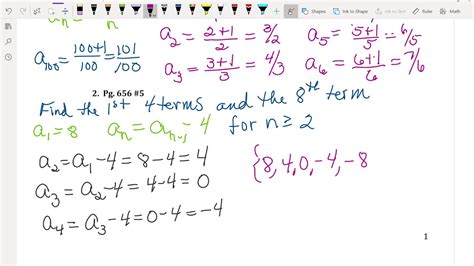 Draw
Pressed
Ink to Shape
Ink to Text
Math
aₙ = n
a₁₀₀ = 100+1/100 = 101/100
a₂ = 2+1/2 = 3/2
a₅ = 5+1/5 = 6/5
a₃ = 3+1/3 = 4/3
a₆ = 6+1/6 = 7/6
2. Pg. 656 #5
Find the 1st 4 terms and the 8th term
a₁ = 8 aₙ = aₙ₋₁ - 4 for n ≥ 2
a₂ = a₁ - 4 = 8 - 4 = 4
{8, 4, 0, -4, -8
a₃ = a₂ - 4 = 4 - 4 = 0
a₄ = a₃ - 4 = 0 - 4 = -4
1